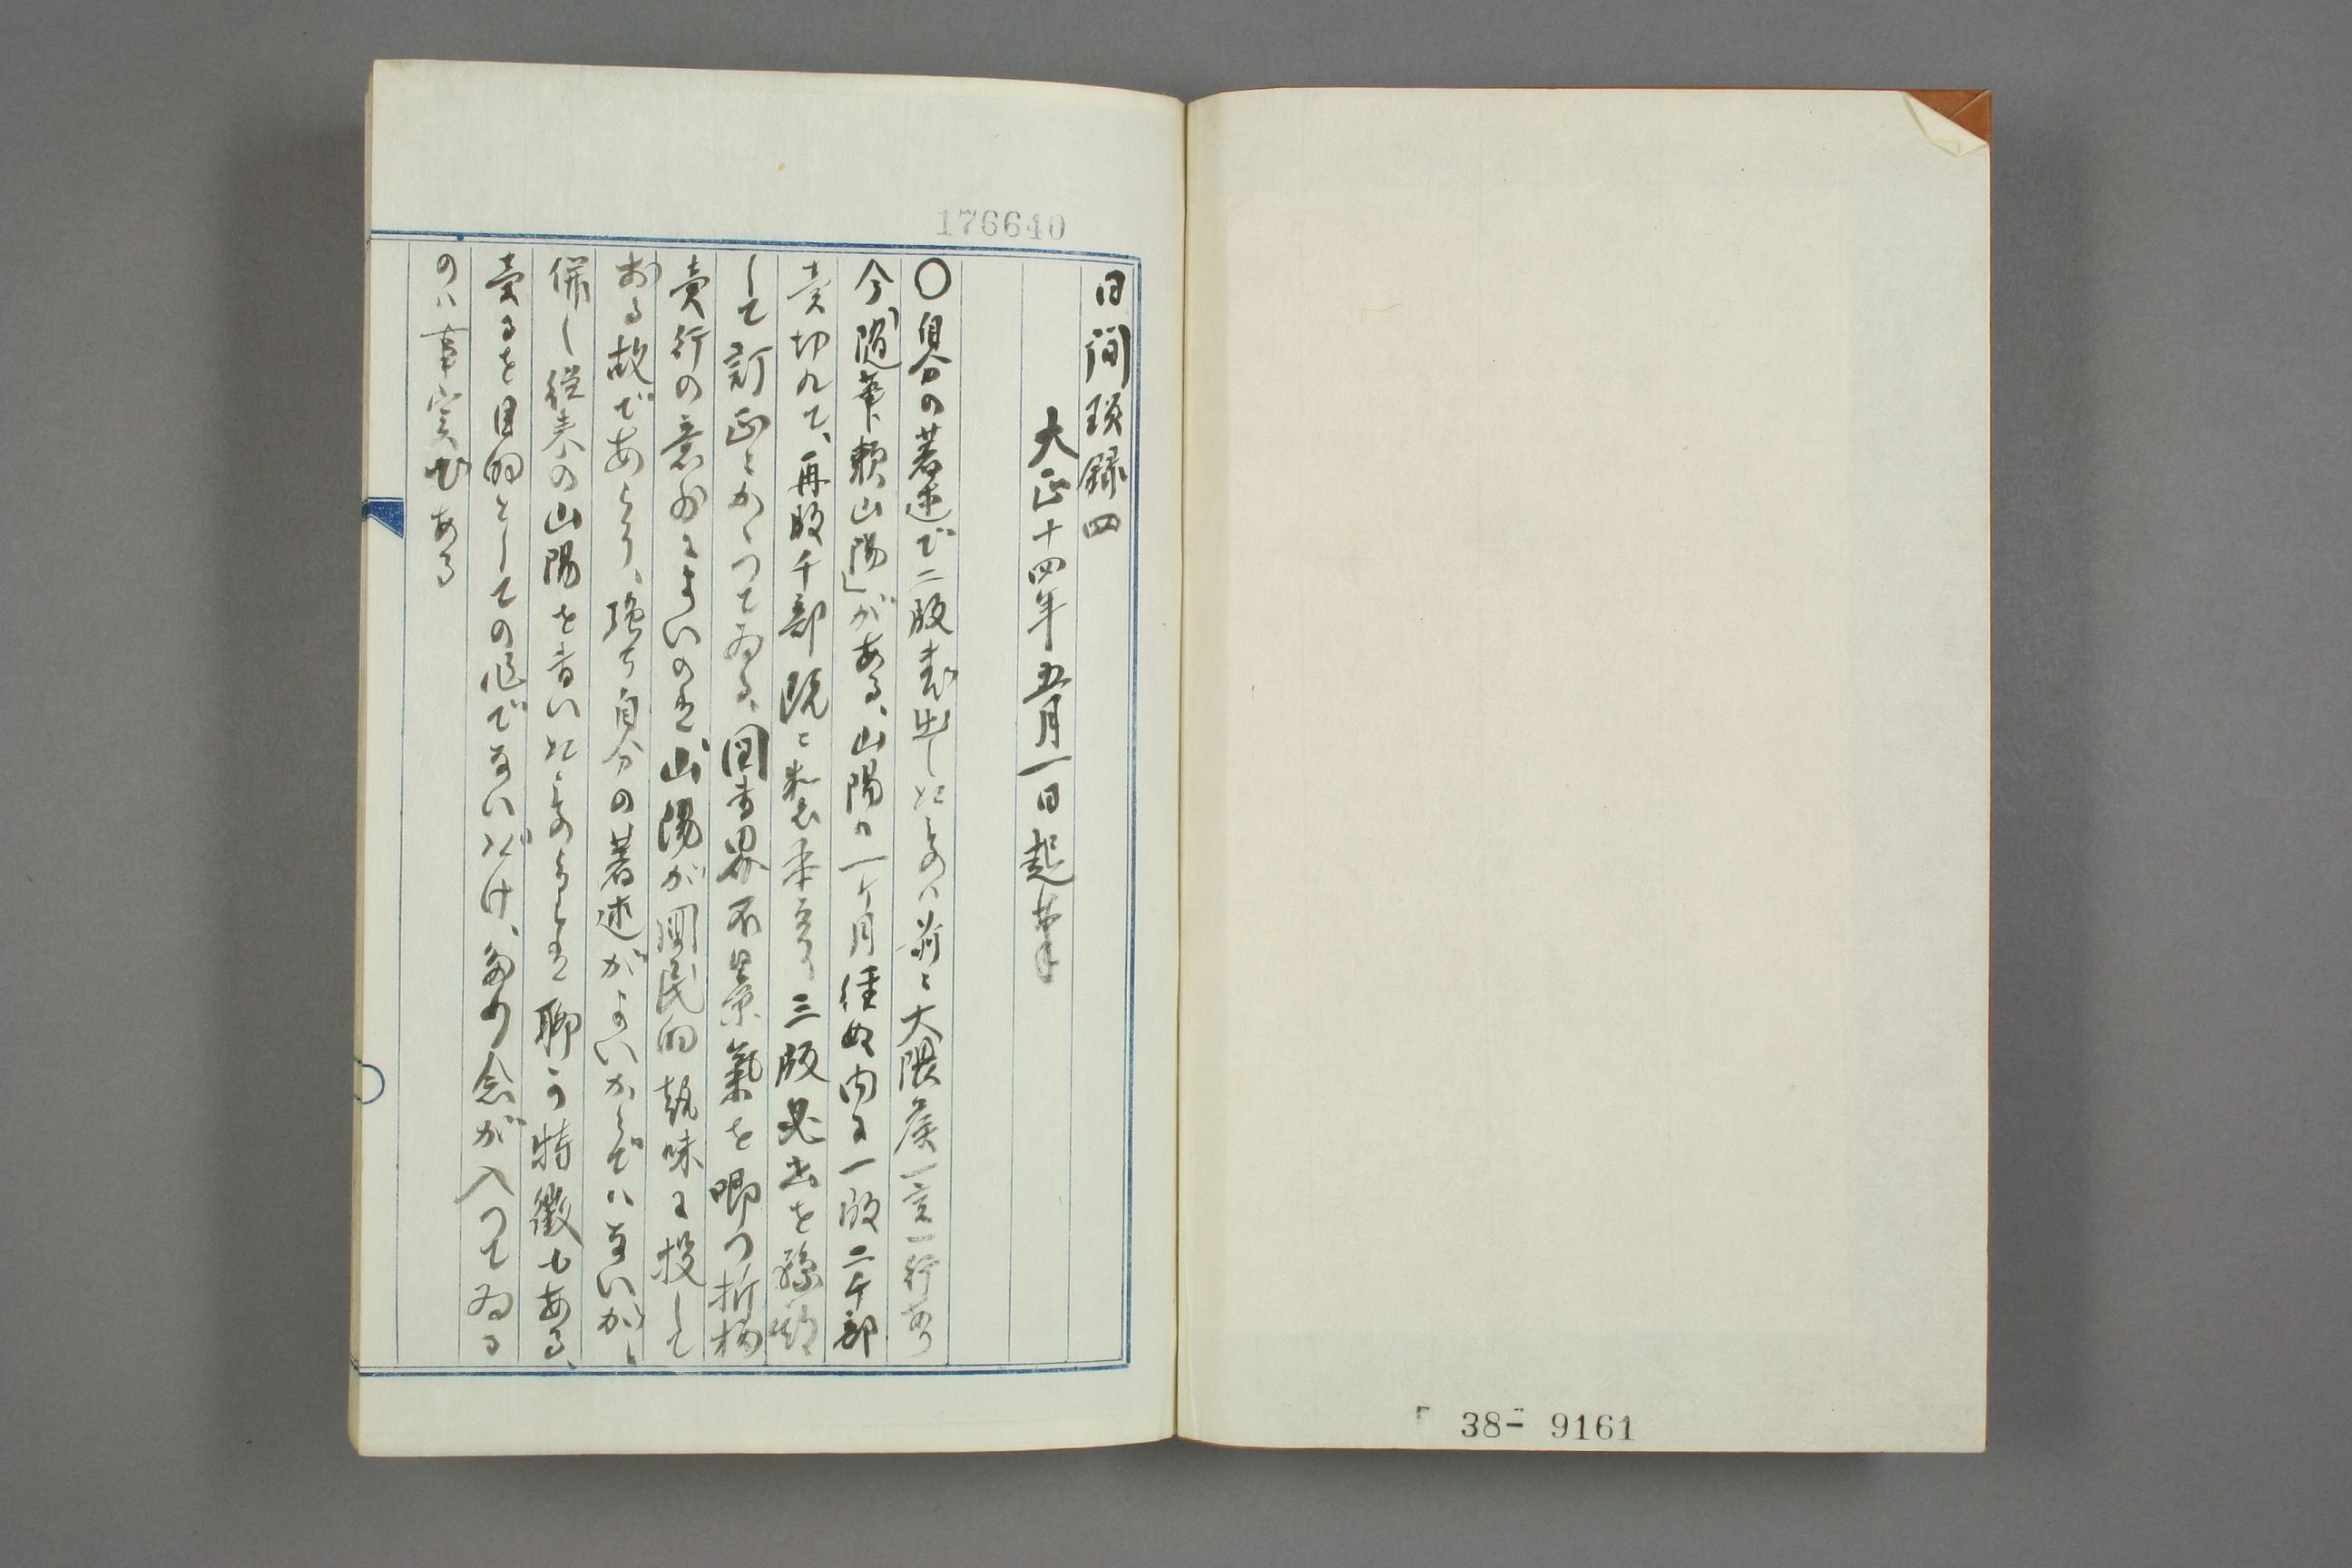 176640
日間瑣録四
大正十四年五月一日起筆
〇自分の著述で二版を出したものハ前に大隈侯一言一行あり
今「随筆頼山陽」がある、山陽ハ一ヶ月経ぬ内に一版二千部
売切れて、再版千部既に製本云々三版見出を
して訂正にかゝつてゐる、図書界不景気を喞つ折柄
売行の意外によいのは山陽が国民的趣味に投して
おる故であらう、強ち自分の著述がよいからでハないから
併し従来の山陽を書いたものよりは聊か特徴もある、
売るを目的としての作でないだけ、多少念が入つてゐる
のハ事実である
38-9161